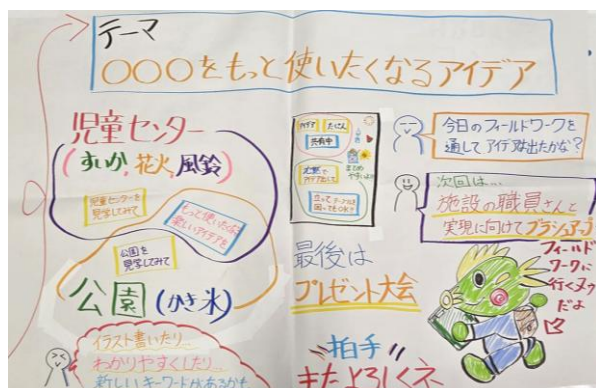 テーマ
○○○をもっと使いたくなるアイデア
児童センター
(すいか,花火,風鈴)
児童センターを
見学してみて
もっと使いたくなる
楽しいアイデアを
公園を
見学してみて
公園(かき氷)
イラスト書いたり…
わかりやすくしたり…
新しいキーワードがあるかも
アイデア
たくさん
共有中
まとめ
やすいよ
最後は
プレゼント大会
拍手
またよろしくネ
今日のフィールドワークを
通してアイデアは出たかな?
次回は…
施設の職員さんと
実現に向けてブラッシュアップ
フィールド
ワークに
行くヌゥ
だよ